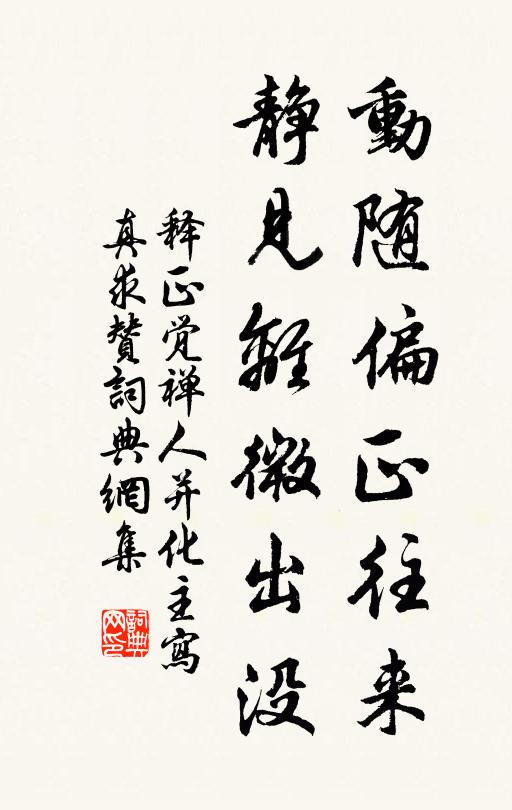 動随偏正往来
静見離微出没
释正覚禅人并化主寫
真求賛詞典網集
詞典网印